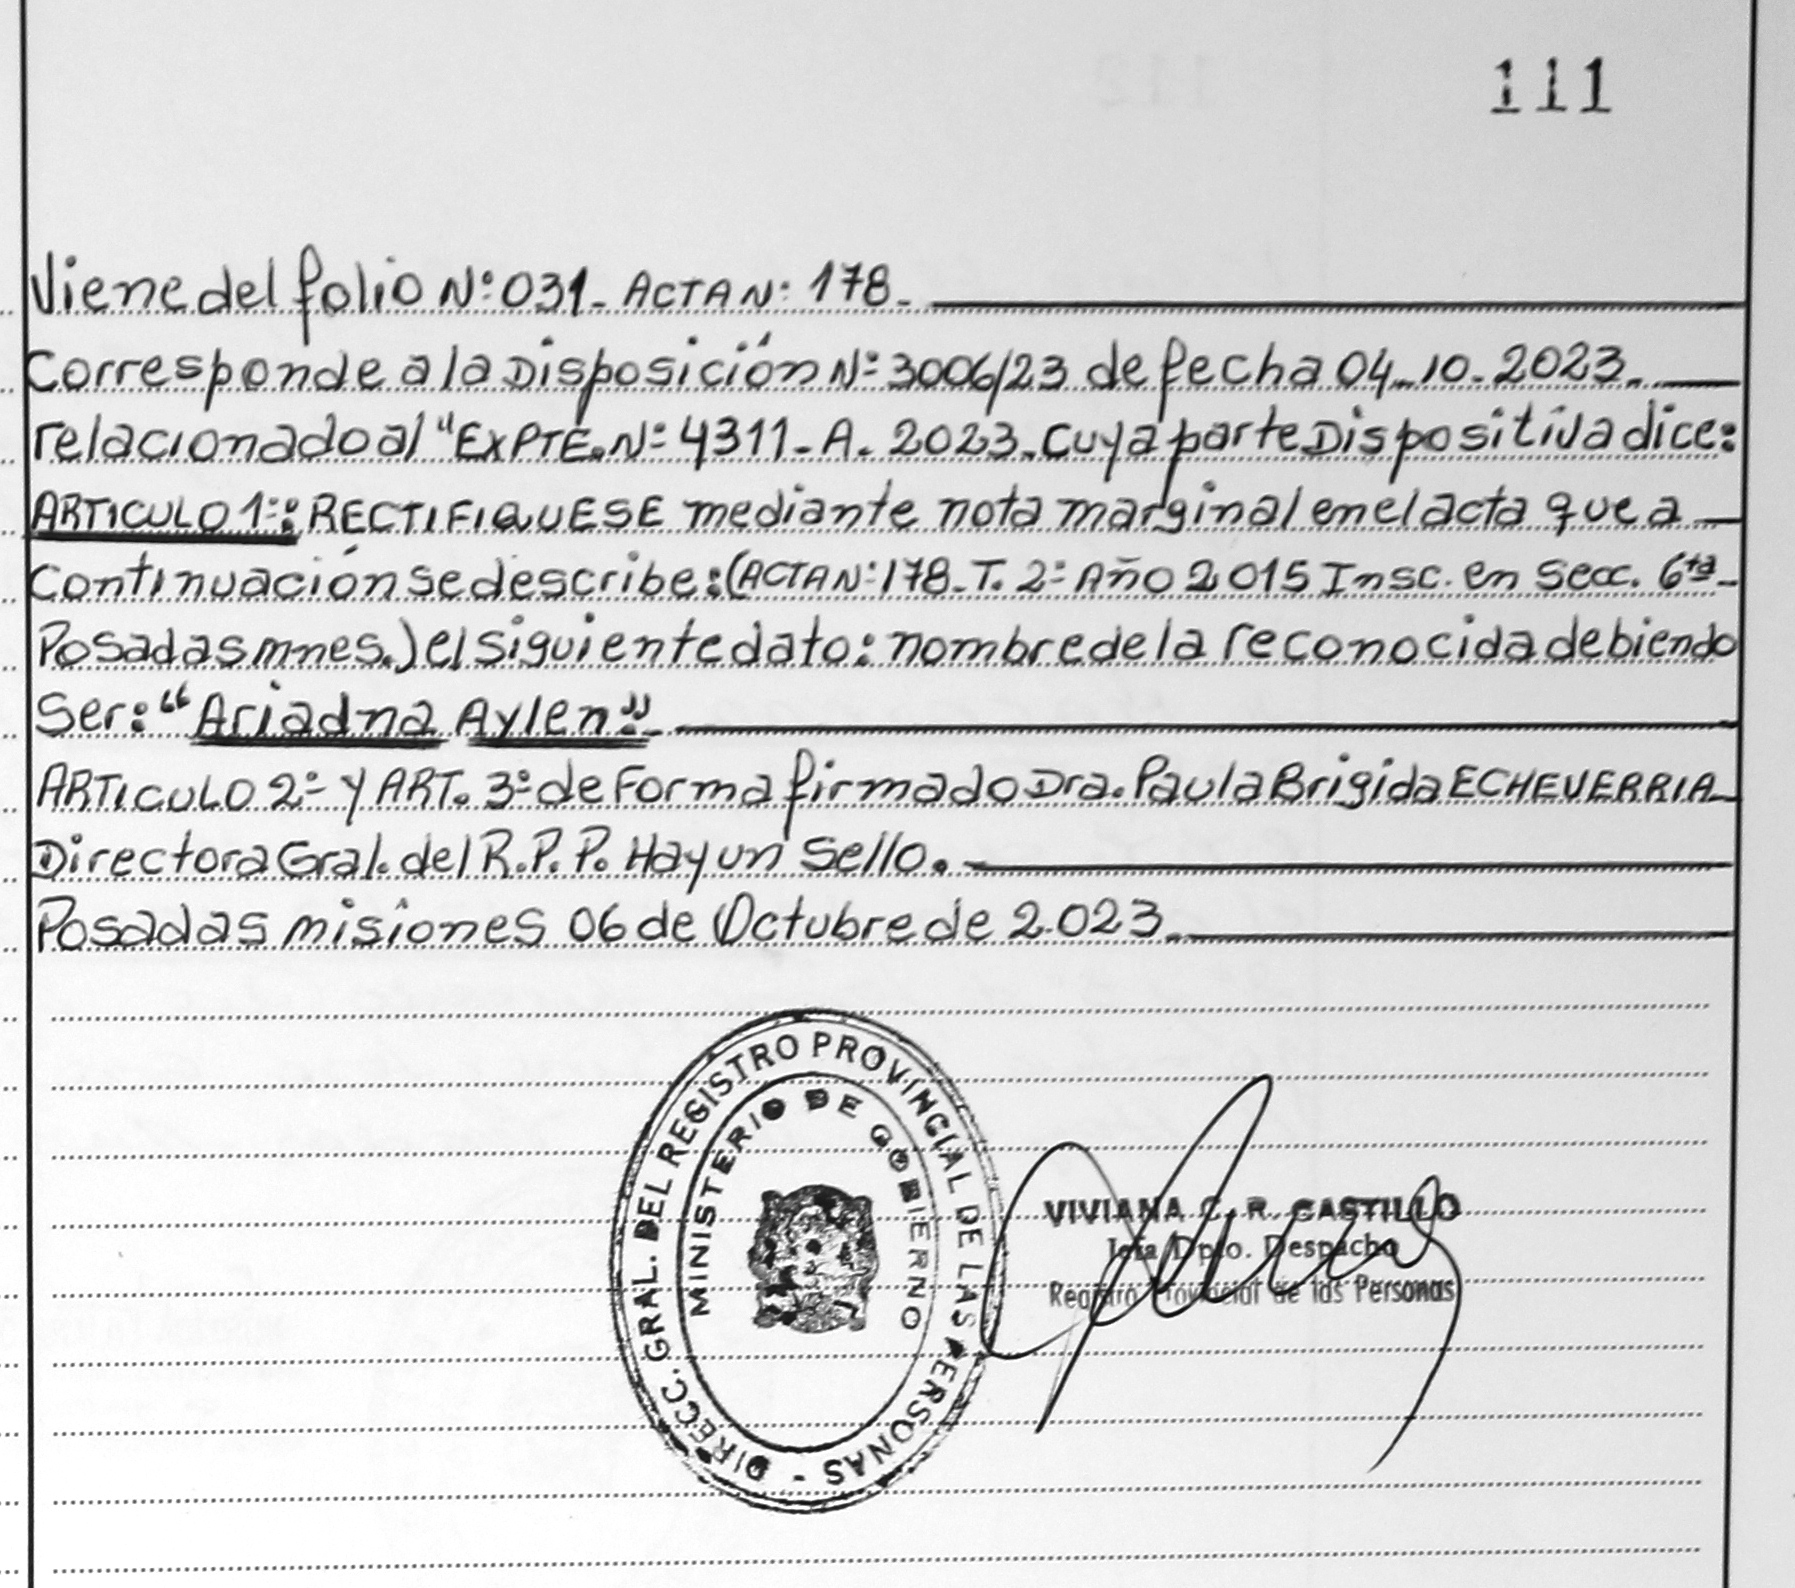 111
Viene del folio Nº: 031 - ACTA Nº: 178 -
Corresponde a la Disposición Nº 3006/23 de fecha 04-10-2023.
relacionado al "EXPTE. Nº 4311-A-2023. Cuya parte Dispositiva dice:
ARTICULO 1º: RECTIFIQUESE mediante nota marginal en el acta que a
Continuación se describe: (ACTA Nº: 178 - T. 2º Año 2015 Insc. en Secc. 6ta -
Posadas mnes.) el siguiente dato: nombre de la reconocida debiendo
Ser: "Ariadna Aylen".
ARTICULO 2º Y ART. 3º de Forma firmado Dra. Paula Brigida ECHEVERRIA
Directora Gral. del R.P.P. Hay un Sello.
Posadas misiones 06 de Octubre de 2.023.
DIRECC. GRAL. DEL REGISTRO PROVINCIAL DE LAS PERSONAS -
MINISTERIO DE GOBIERNO
VIVIANA C. R. CASTILLO
Jefa Dpto. Despacho
Registro Provincial de las Personas